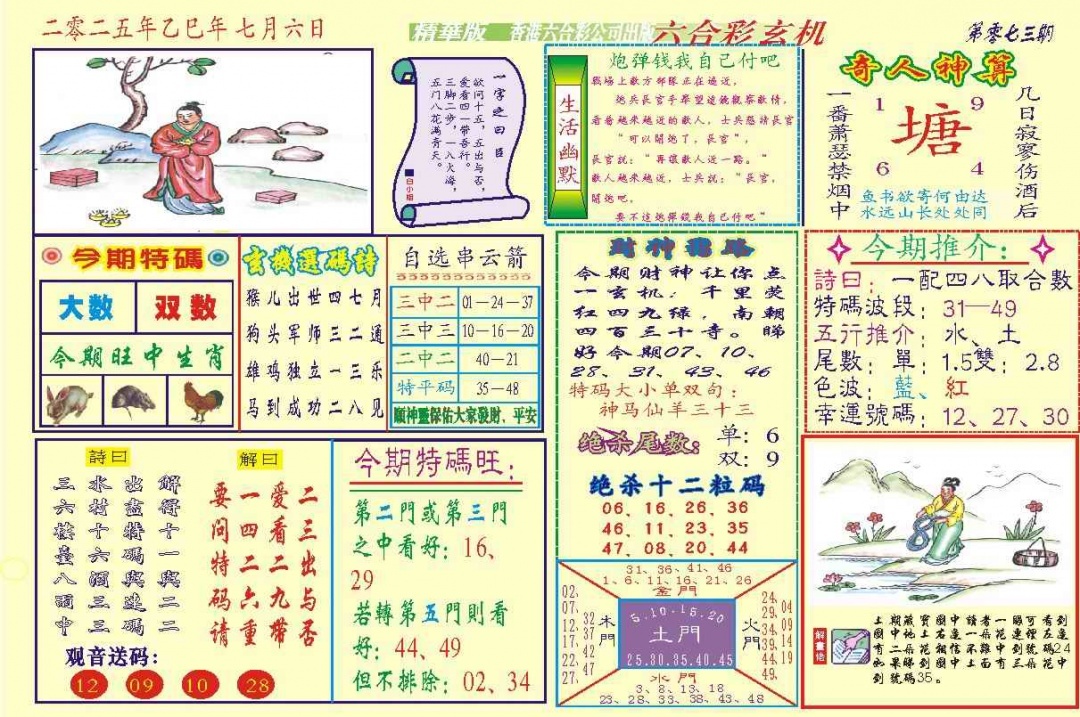 二零二五年乙巳年七月六日
精華版 香港六合彩公司出版 六合彩玄机
第零七三期
一字之曰
欲问十五,五出与否,
爱看四一带吾行。
三脚二步,一入火海,
五门八花满青天。
白小姐
生活幽默
炮弹钱我自己付吧
戰場上敵方部隊正在逼近,
炮兵長官手舉望遠鏡觀察敵情,
看着越来越近的敵人,士兵懇請長官
“可以開炮了,長官”
長官說:“再讓敵人近一路。”
敵人越来越近,士兵說:“長官,
開炮吧,
要不這炮彈錢我自己付吧”
奇人神算
一番萧瑟禁烟中
几日寂寥伤酒后
1 9
塘
6 4
鱼书欲寄何由达
水远山长处处同
今期特碼
大数 双数
今期旺中生肖
玄機選碼詩
猴儿出世四七月
狗头军师三二通
雄鸡独立一三乐
马到成功二八见
自选串云箭
三中二 01－24－37
三中三 10－16－20
二中二 40－21
特平码 35－48
順神靈保佑大家發財、平安
財神
今期财神让你点
一玄机:千里荧
红四九绿,南朝
四百三十寺。睇
好今期07、10、
28、31、43、46
特码大小单双句:
神马仙羊三十三
绝杀尾数: 单:6
双:9
绝杀十二粒码
06、16、26、36
46、11、23、35
47、08、20、44
今期推介:
詩曰:一配四八取合數
特碼波段:31—49
五行推介:水、土
尾數:單:1.5雙:2.8
色波:藍、紅
幸運號碼:12、27、30
詩曰
三六楼臺八酒中
水村十六酒三三
出盡特碼與速碼
解得十一與二二
解曰
要问特码请
一四二六重
爱看二九带
二三出与否
观音送码:
12 09 10 28
今期特碼旺:
第二門或第三門
之中看好:16、
29
若轉第五門則看
好:44、49
但不排除:02、34
31、36、41、46
1、6、11、16、21、26
金門
02、07、12、17、22、27、
32、37、42、47
木門
5.10-15.20
土門
25.30.35.40.45
火門
24、29、34、39、44、49
04、09、14、19
水門
3、8、13、18
23、28、33、38、43、48
解畫佬
土期藏寶圖中讀者一睇可看到